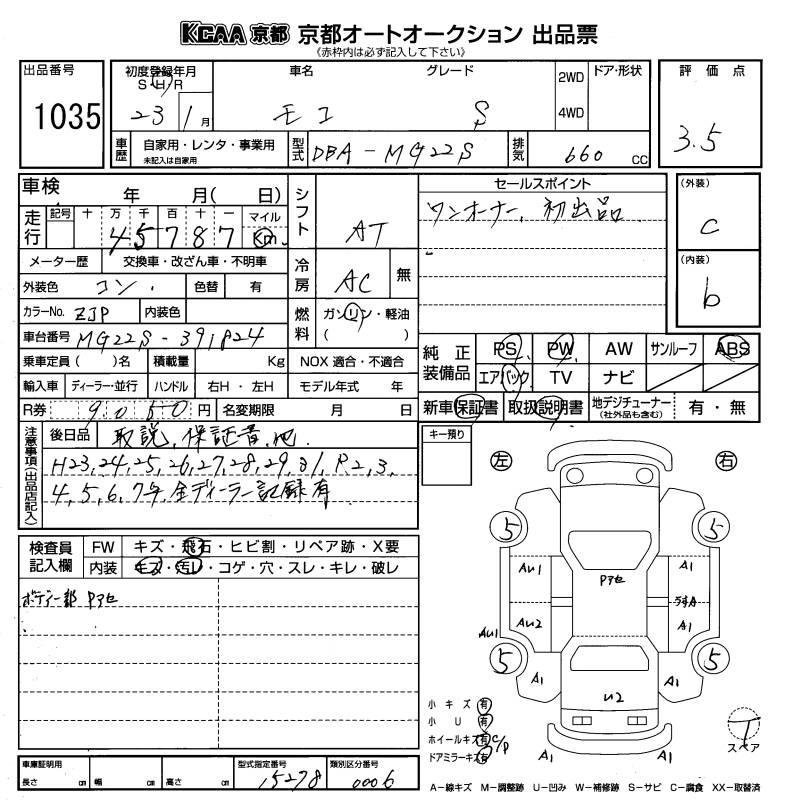 KCAA 京都 京都オートオークション 出品票
《赤枠内は必ず記入して下さい》
出品番号
1035
初度登録年月
S・H・R
23 1 月
車名
モコ
グレード
S
2WD
4WD
ドア・形状
評価点
3.5
車歴
自家用・レンタ・事業用
未記入は自家用
型式
DBA-MG22S
排気
660 CC
車検 年 月( 日)
走行
記号 十 万 千 百 十 一 マイル
45787 Km
シフト
AT
セールスポイント
ワンオーナー、初出品
(外装)
C
(内装)
b
メーター歴 交換車・改ざん車・不明車
外装色 コン. 色替 有
カラーNo. ZJP 内装色
車台番号 MG22S-391824
冷房
AC 無
燃料
ガソリン・軽油
( )
乗車定員( )名 積載量 Kg NOX 適合・不適合
輸入車 ディーラー・並行 ハンドル 右H・左H モデル年式 年
R券 9050円 名変期限 月 日
純正装備品
PS PW AW サンルーフ ABS
エアバック TV ナビ
新車保証書 取扱説明書 地デジチューナー(社外品も含む) 有・無
注意事項(出品店記入)
後日品 取説、保証書、他.
H23,24,25,26,27,28,29,31,R2,3,
4,5,6,7年、全ディーラー記録有
キー預り
左
右
検査員記入欄
FW キズ・飛石・ヒビ割・リペア跡・X要
内装 キズ・汚レ・コゲ・穴・スレ・キレ・破レ
ボディー部 Pアセ
5
5
AU1
Pアセ
A1
AU2
A1
AU1
5
5
A1
A1
U2
A1
A1
小キズ 有
小U 有
ホイールキズ 有 C/P
ドアミラーキズ 有
T
スペア
車庫証明用
長さ cm 幅 cm 高さ cm
型式指定番号
15278
類別区分番号
0006
A-線キズ M-調整跡 U-凹み W-補修跡 S-サビ C-腐食 XX-取替済